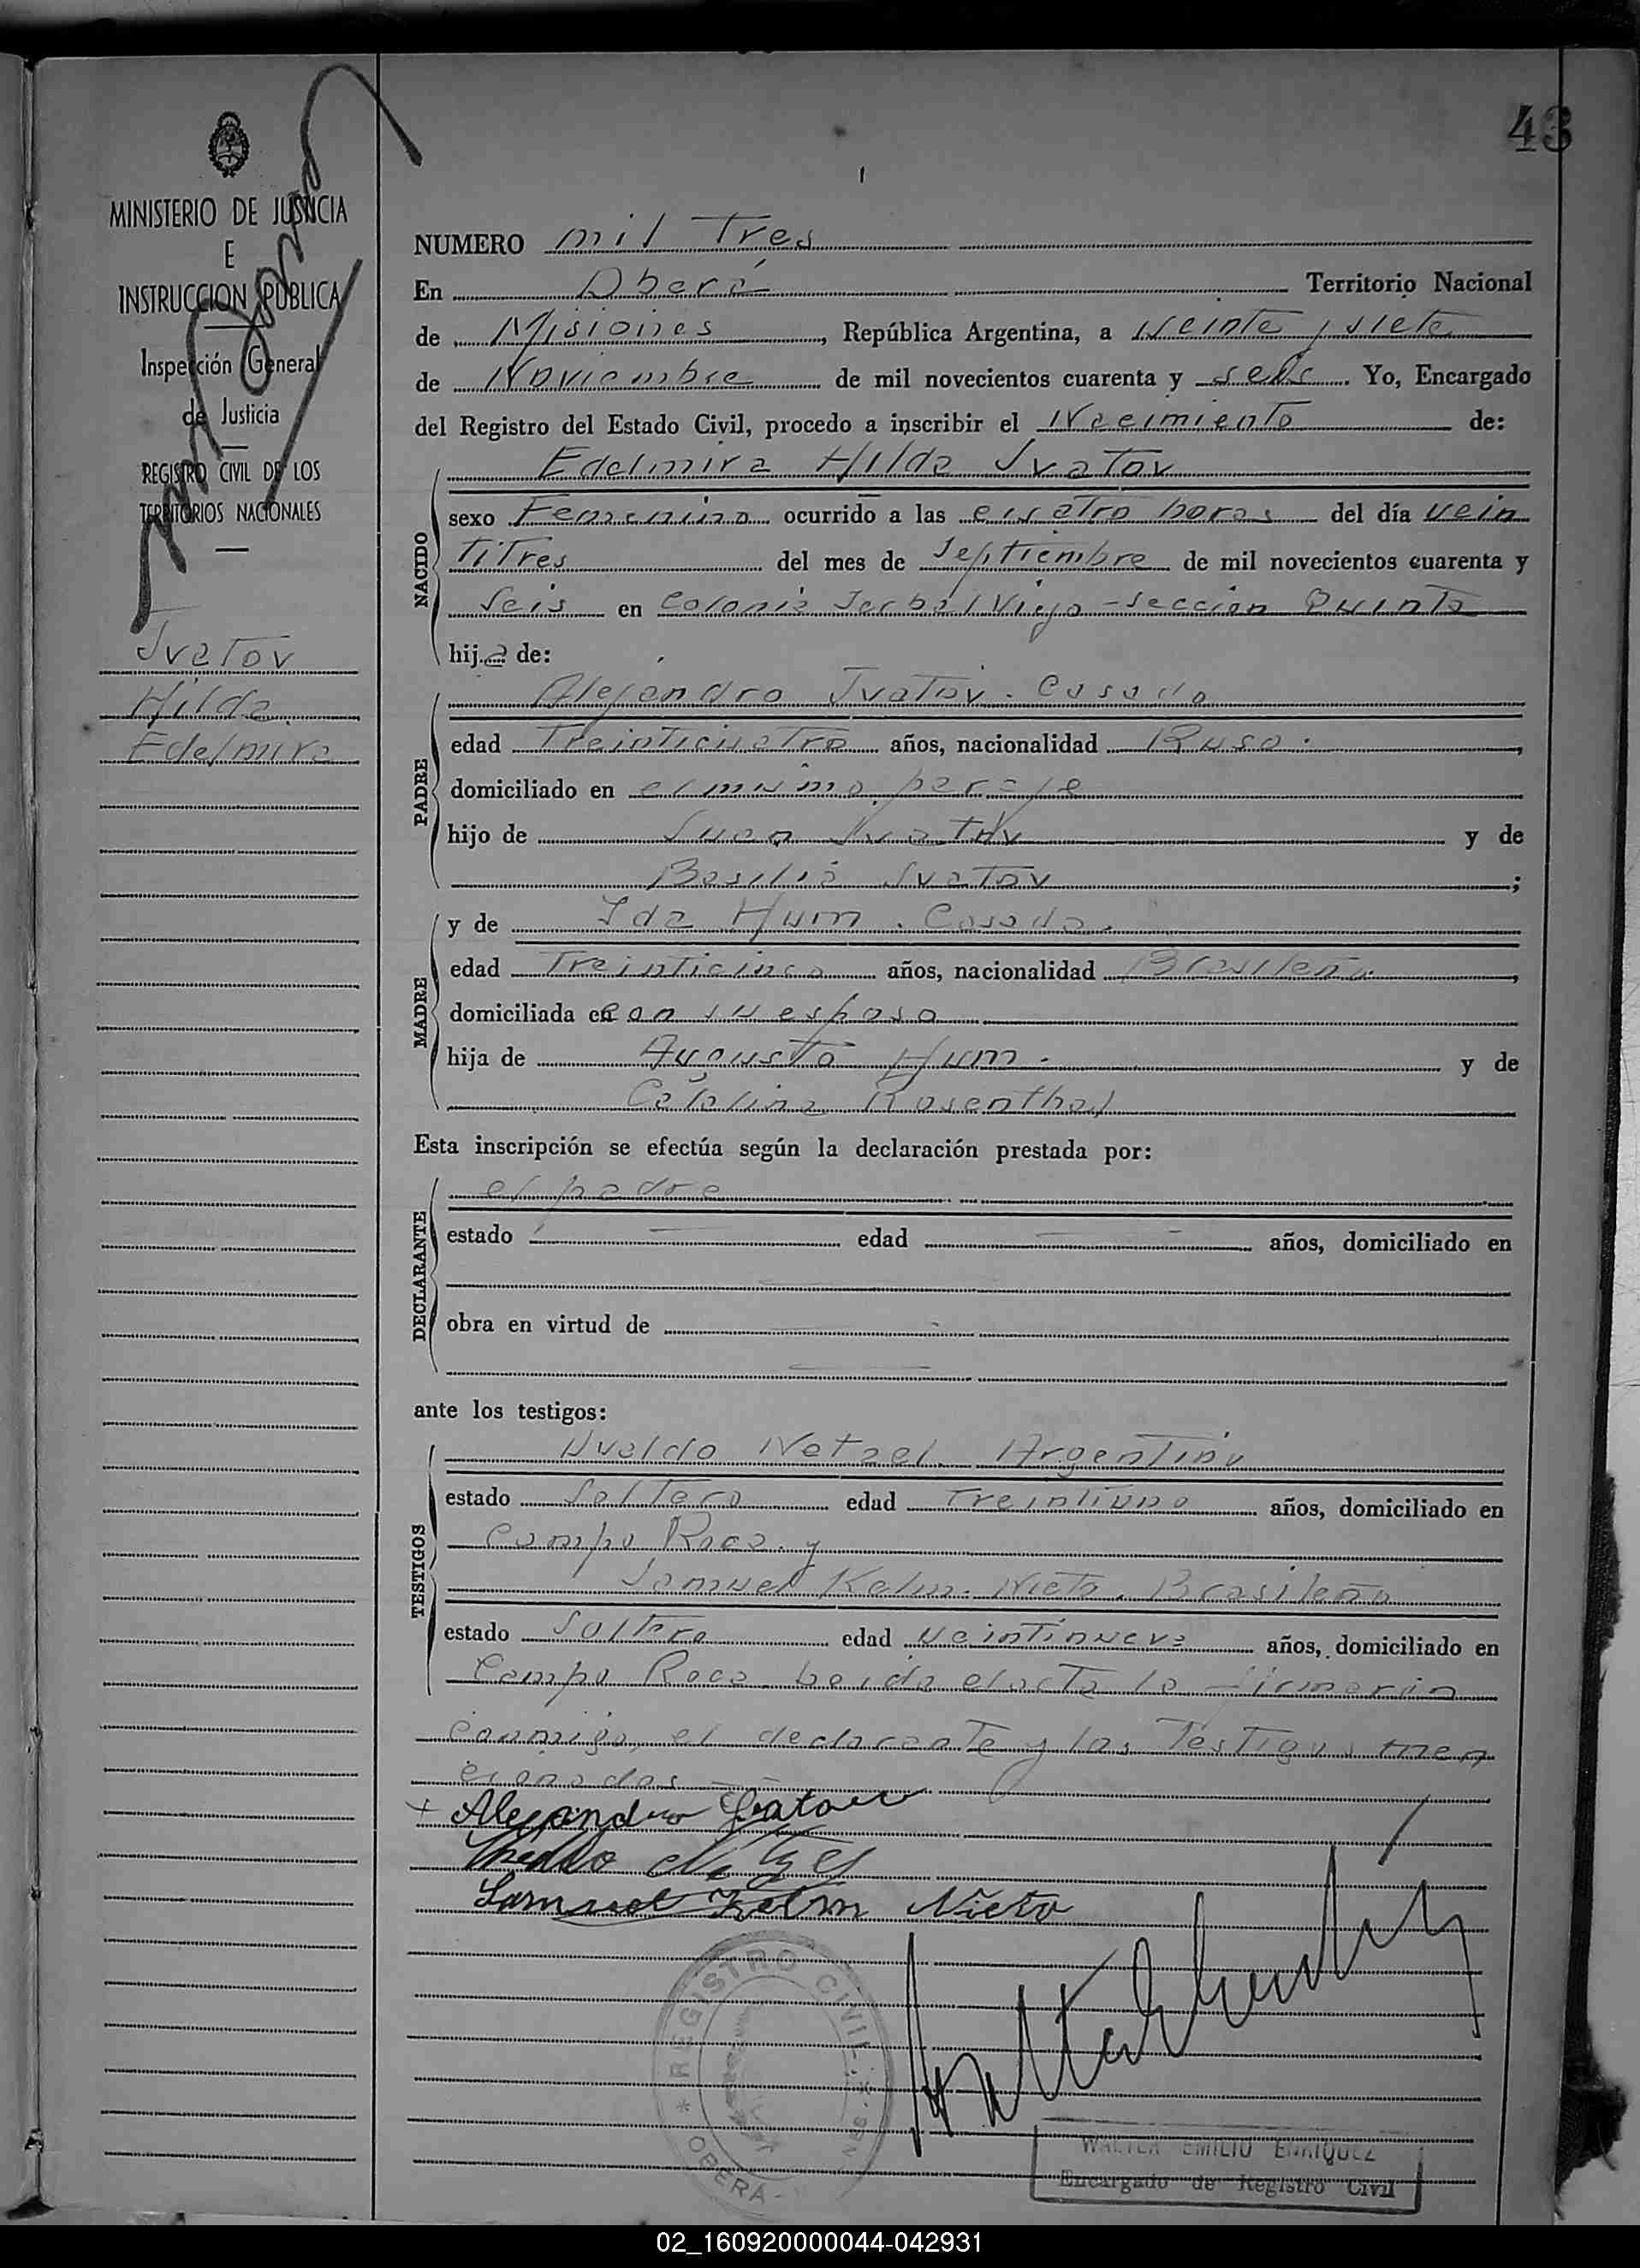 43
MINISTERIO DE JUSTICIA
E
INSTRUCCION PUBLICA
Inspección General
de Justicia
REGISTRO CIVIL DE LOS
TERRITORIOS NACIONALES
Ivatov
Hilda
Edelmira
NUMERO mil Tres
En Oberá Territorio Nacional
de Misiones, República Argentina, a veinte y siete
de Noviembre de mil novecientos cuarenta y seis. Yo, Encargado
del Registro del Estado Civil, procedo a inscribir el Nacimiento de:
Edelmira Hilda Ivatov
NACIDO
sexo Femenino ocurrido a las cuatro horas del día vein
titres del mes de Septiembre de mil novecientos cuarenta y
Seis en Colonia Yerbal Viejo - Sección Quinta
hija de:
PADRE
Alejandro Ivatov. Casado
edad Treinticuatro años, nacionalidad Ruso.,
domiciliado en el mismo paraje
hijo de Juan Ivatov y de
Basilia Ivatov;
MADRE
y de Ida Hum. Casada.
edad Treinticinco años, nacionalidad Brasileña,
domiciliada en con su esposo
hija de Augusto Hum. y de
Catalina Rosenthal
Esta inscripción se efectúa según la declaración prestada por:
DECLARANTE
el padre
estado edad años, domiciliado en
obra en virtud de
ante los testigos:
TESTIGOS
Uvaldo Netzel. Argentino
estado Soltero edad Treintiuno años, domiciliado en
Campo Roca. y
Samuel Kelm. Nieto. Brasileño
estado Soltero edad veintinueve años, domiciliado en
Campo Roca. Leída el acta la firmarán
conmigo, el declarante y los Testigos men
cionados
+ Alejandro
Samuel Kelm Nieto
* REGISTRO CIVIL * OBERA -
WALTER EMILIO ENRIQUEZ
Encargado de Registro Civil
02_160920000044-042931